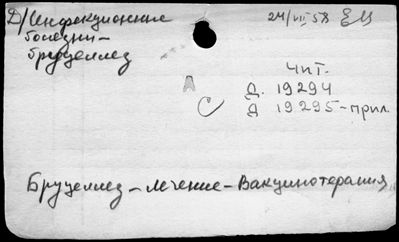 Д/Инфекционные 24/VII 58 ЕМ
болезни-
бруцеллез
Чит.
А Д. 19294
Д 19295-прил.
Бруцеллез - лечение - Вакцинотерапия